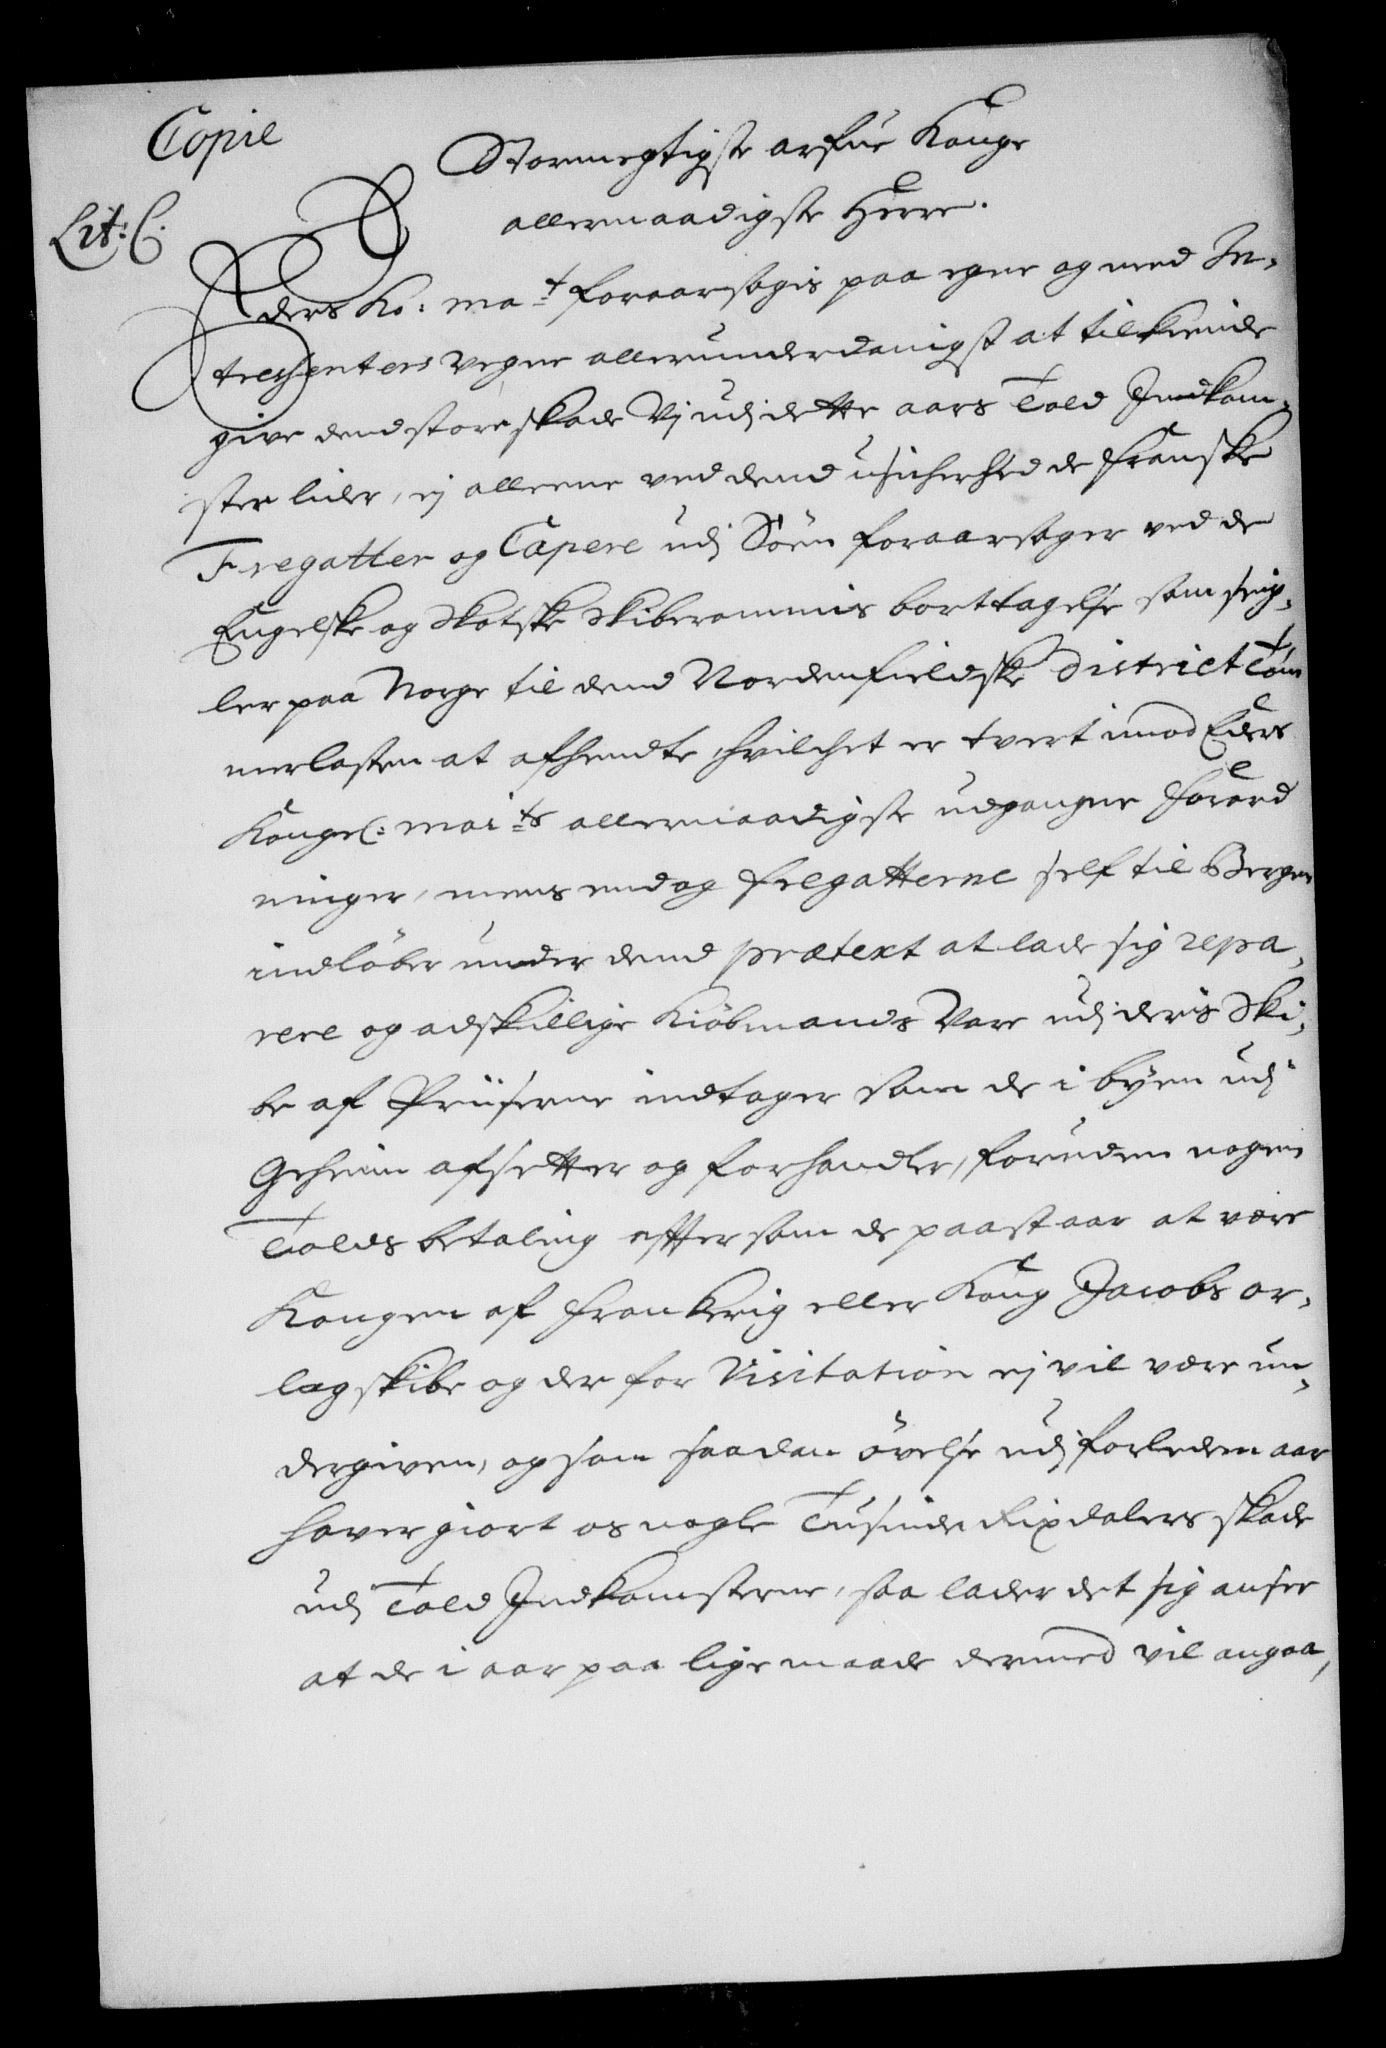 Copie
Stormegtigste arfue Konge
Lit: C.
allernaadigste Herre.
Eders Ko: ma:t foraarsagis paa egne og med In-
tressenters Vegne allerunderdanigst at tilkiende
give dend store skade Vj udj dette aars Told Indkom-
ster lider, ej alleene ved dend usicherhed de franske
Fregatter og Capere udj Søen foraarsager ved de
Engelske og Skotske Skiberommis borttagelse som seig-
ler paa Norge til dend Nordenfieldske District Tøm
merlasten at afhendte, hvilchet er tvert imod Eders
Kongel: mai:ts allernaadigste udgangne forord
ninger, mens endog fregatterne self til Bergen
indløber under dend prætext at lade sig repa-
rere og adskillige Kiøbmands Vare udj deris Ski-
be af Priiserne indtager som de i byen udj
Geheim afsetter og forhandler, foruden nogen
Tolds betaling effter som de paastaar at være
Kongen af Frankerig eller Kong Jacobs or-
logskibe og der for Visitation ej vil være un-
dergiven, og som saadan øvelse udj forleden aar
haver giort os nogle Tusinde Rixdalers skade
udj Told Indkomsterne, saa lader det sig ansee
at de i aar paa lige maade dermed vil angaa,